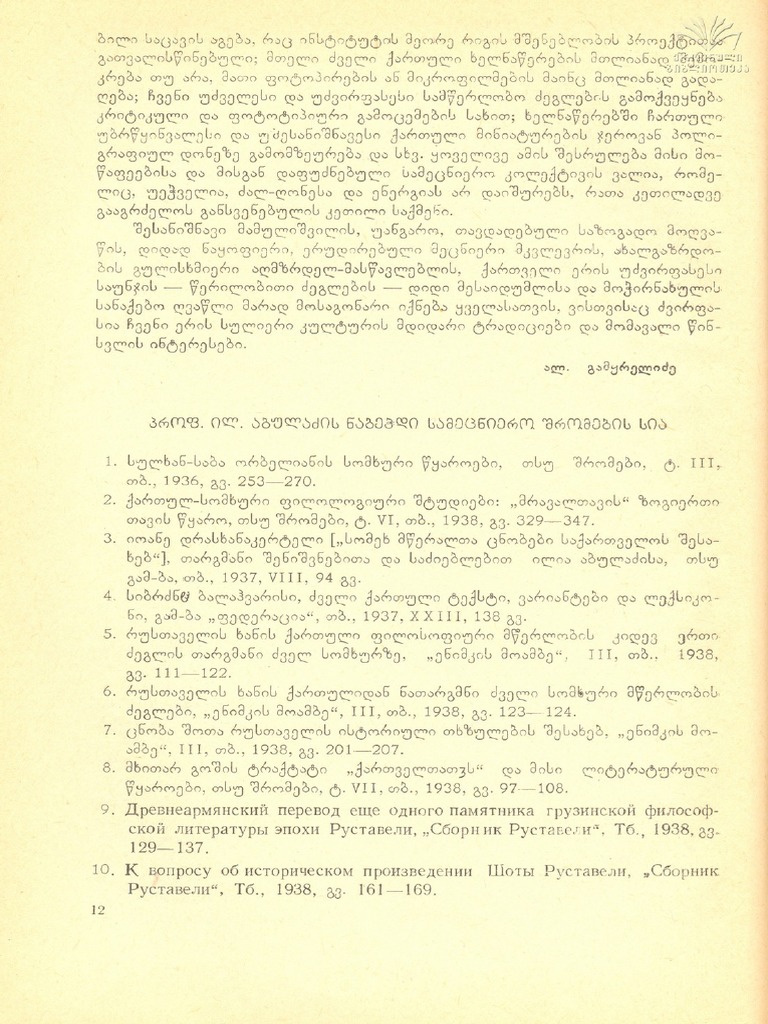 ბილი საცავის აგება, რაც ინსტიტუტის მეორე რიგის მშენებლობის პროექტითაა
გათვალისწინებული; მთელი ძველი ქართული ხელნაწერების მთლიანად შემო-
კრება თუ არა, მათი ფოტოპირების ან მიკროფილმების მაინც მთლიანად გადა-
ღება; ჩვენი უძველესი და უძვირფასესი სამწერლობო ძეგლების გამოქვეყნება
კრიტიკული და ფოტოტიპიური გამოცემების სახით; ხელნაწერებში ჩართული
უბრწყინვალესი და უშესანიშნავესი ქართული მინიატურების ჯეროვან პოლი-
გრაფიულ დონეზე გამომზეურება და სხვ. ყოველივე ამის შესრულება მისი მო-
წაფეებისა და მისგან დაფუძნებული სამეცნიერო კოლექტივის ვალია, რომე-
ლიც, უეჭველია, ძალ-ღონესა და ენერგიას არ დაიშურებს, რათა კეთილადვე
გააგრძელოს განსვენებულის კეთილი საქმენი.
შესანიშნავი მამულიშვილის, უანგარო, თავდადებული საზოგადო მოღვა-
წის, დიდად ნაყოფიერი, ერუდირებული მეცნიერი მკვლევრის, ახალგაზრდო-
ბის გულისხმიერი აღმზრდელ-მასწავლებლის, ქართველი ერის უძვირფასესი
საუნჯის — წერილობითი ძეგლების — დიდი მესაიდუმლისა და მოჭირნახულის
სანაქებო ღვაწლი მარად მოსაგონარი იქნება ყველასათვის, ვისთვისაც ძვირფა-
სია ჩვენი ერის სულიერი კულტურის მდიდარი ტრადიციები და მომავალი წინ-
სვლის ინტერესები.
ალ. გამყრელიძე
პროფ. ილ. აბულაძის ნაბეჭდი სამეცნიერო შრომების სია
1. სულხან-საბა ორბელიანის სომხური წყაროები, თსუ შრომები, ტ. III,
თბ., 1936, გვ. 253—270.
2. ქართულ-სომხური ფილოლოგიური შტუდიები: „მრავალთავის“ ზოგიერთი
თავის წყარო, თსუ შრომები, ტ. VI, თბ., 1938, გვ. 329—347.
3. იოანე დრასხანაკერტელი [„სომეხ მწერალთა ცნობები საქართველოს შესა-
ხებ“], თარგმანი შენიშვნებითა და საძიებლებით ილია აბულაძისა, თსუ
გამ-ბა, თბ., 1937, VIII, 94 გვ.
4. სიბრძნე ბალაჰვარისი, ძველი ქართული ტექსტი, ვარიანტები და ლექსიკო-
ნი, გამ-ბა „ფედერაცია“, თბ., 1937, XXIII, 138 გვ.
5. რუსთაველის ხანის ქართული ფილოსოფიური მწერლობის კიდევ ერთი
ძეგლის თარგმანი ძველ სომხურზე, „ენიმკის მოამბე“, III, თბ., 1938,
გვ. 111—122.
6. რუსთაველის ხანის ქართულიდან ნათარგმნი ძველი სომხური მწერლობის
ძეგლები, „ენიმკის მოამბე“, III, თბ., 1938, გვ. 123—124.
7. ცნობა შოთა რუსთაველის ისტორიული თხზულების შესახებ, „ენიმკის მო-
ამბე“, III, თბ., 1938, გვ. 201—207.
8. მხითარ გოშის ტრაქტატი „ქართველთათჳს“ და მისი ლიტერატურული
წყაროები, თსუ შრომები, ტ. VII, თბ., 1938, გვ. 97—108.
9. Древнеармянский перевод еще одного памятника грузинской философ-
ской литературы эпохи Руставели, „Сборник Руставели“, Тб., 1938, გვ.
129—137.
10. К вопросу об историческом произведении Шоты Руставели, „Сборник
Руставели“, Тб., 1938, გვ. 161—169.
12